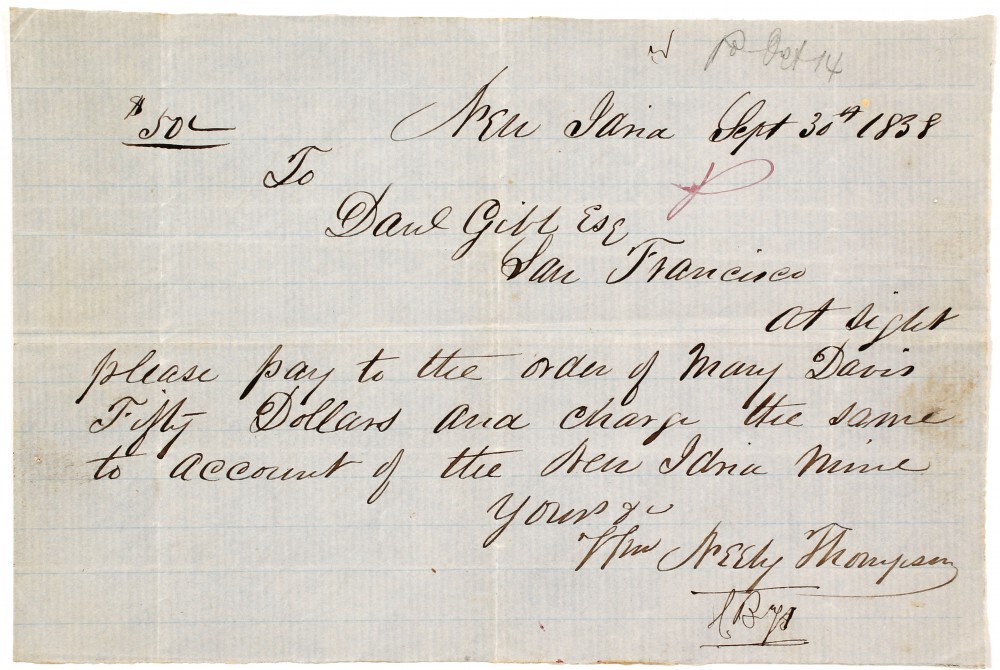 Oct 14
$50
New Idria Sept 30th 1858
To
Danl Gibb Esq
San Francisco
at sight
please pay to the order of Mary Davis
Fifty Dollars and charge the same
to account of the New Idria Mine
Yours &c
Wm Neely Thompson